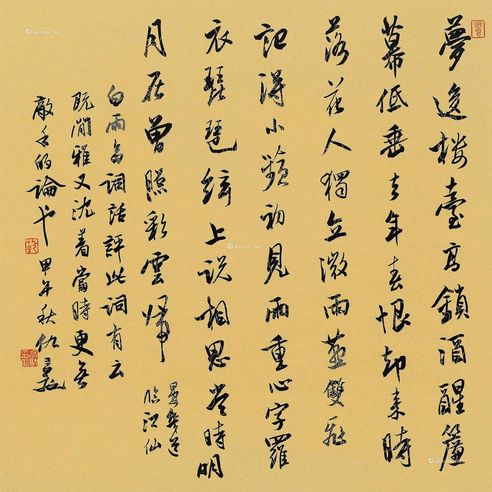 夢後樓臺高鎖酒醒簾
幕低垂去年春恨却来時
落花人獨立微雨燕雙飛
記得小蘋初見兩重心字羅
衣琵琶絃上说相思當時明
月在曾照彩雲歸
晏幾道
臨江仙
白雨齋詞話評此詞有云
既閒雅又沈着當時更無
敵手的論也 甲午秋仇